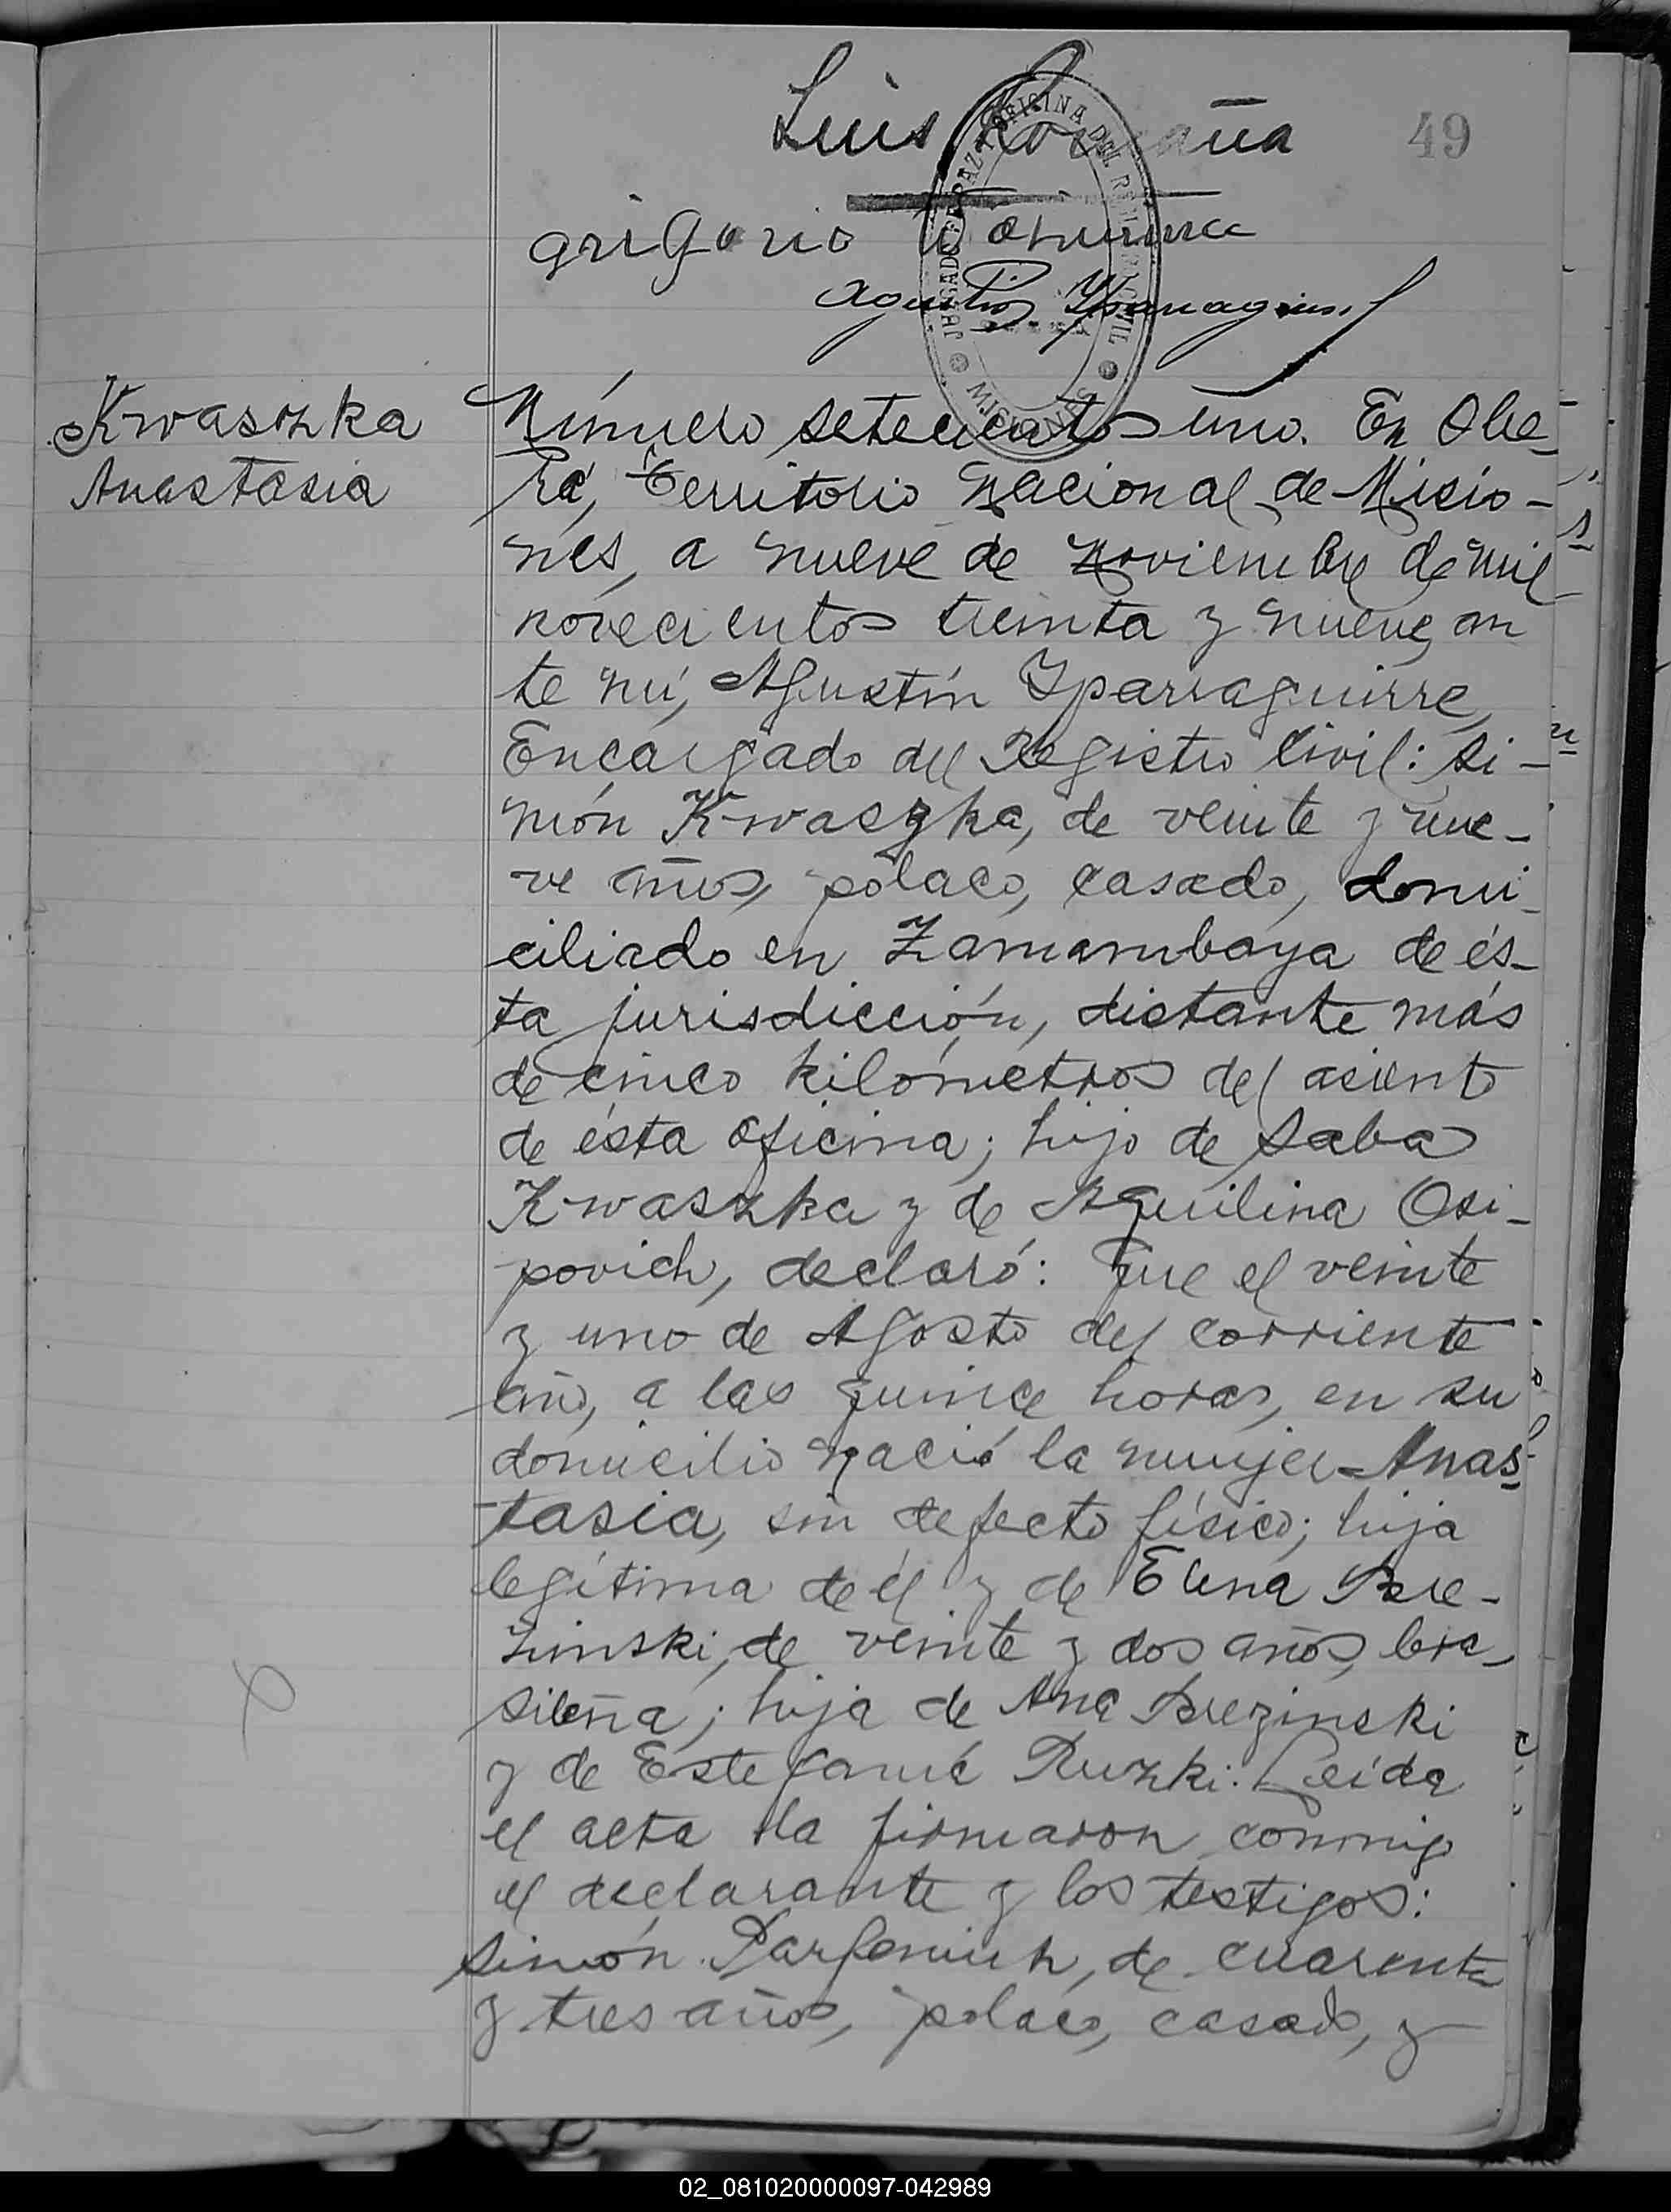 Luis
49
Grigorio
Agustin Yparraguirre
Kwaszka
Anastasia
Número setecientos uno. En Obe-
rá, Territorio Nacional de Misio-
nes, a nueve de Noviembre de mil
novecientos treinta y nueve, an
te mí, Agustín Yparraguirre,
Encargado del Registro Civil: Si-
món Kwaszka, de veinte y nue-
ve años, polaco, casado, domi-
ciliado en Zamambaya de és-
ta jurisdicción, distante más
de cinco kilómetros del asiento
de ésta Oficina; hijo de Saba
Kwaszka y de Aquilina Osi-
povich, declaró: Que el veinte
y uno de Agosto del corriente
año, a las quince horas, en su
domicilio nació la mujer Anas-
tasia, sin defecto físico; hija
legítima de él y de Elena Bre-
zinski, de veinte y dos años, bra-
sileña; hija de Ana Brezinski
y de Estefanía Ruzki. Leída
el acta la firmaron conmigo
el declarante y los testigos:
Simón Parfeniuk, de cuarenta
y tres años, polaco, casado, y
JUZGADO DE PAZ Y OFICINA DEL REGISTRO CIVIL
MISIONES
02_081020000097-042989